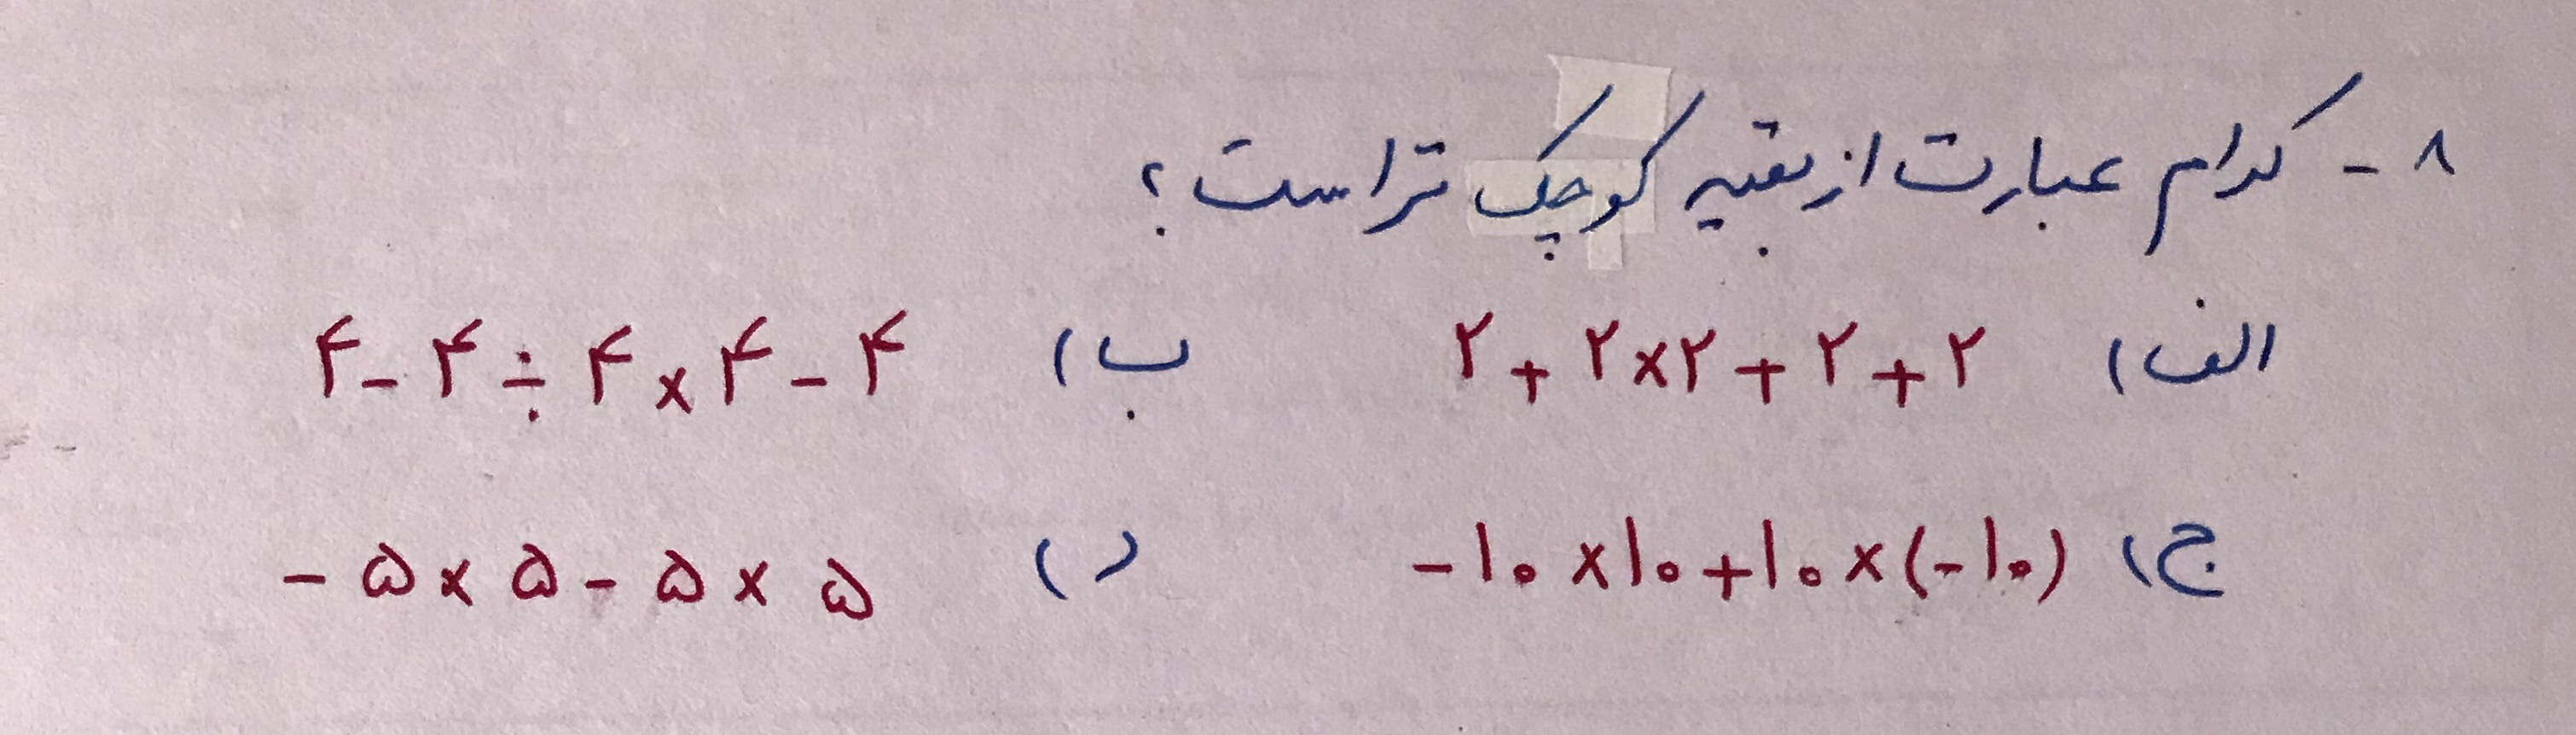 ۸ - کدام عبارت از بقیه کوچک تر است؟
الف) ۲ + ۲ × ۲ + ۲ + ۲ ب) ۴ - ۴ ÷ ۴ × ۴ - ۴
ج) -۱۰ × ۱۰ + ۱۰ × (-۱۰) د) - ۵ × ۵ - ۵ × ۵